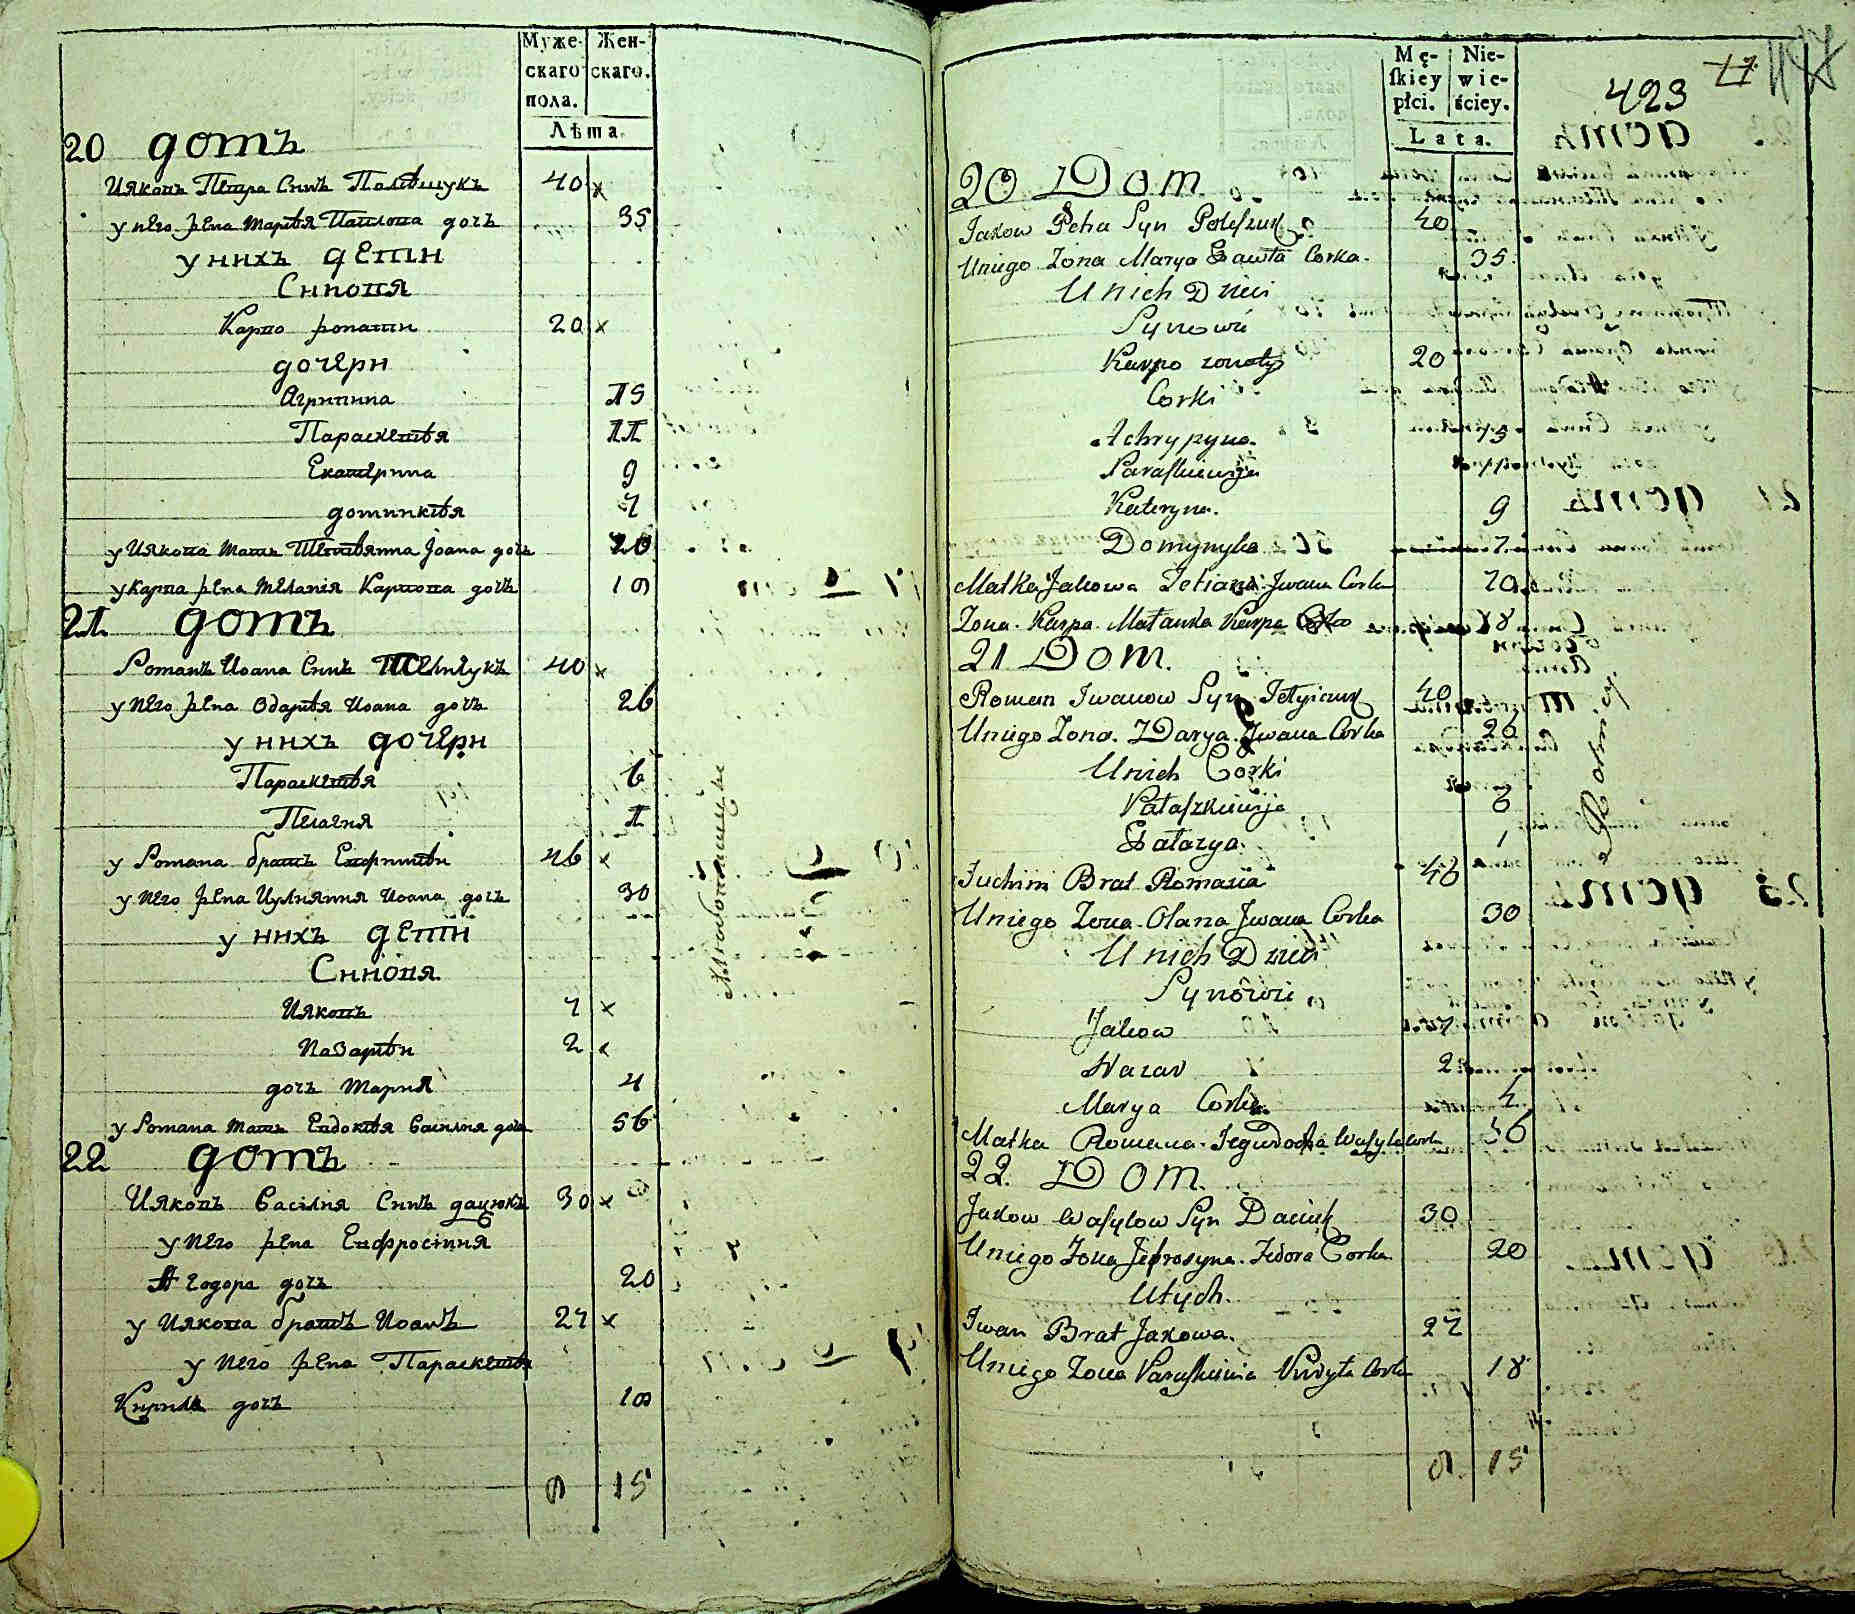 Муже-
скаго
пола.
Жен-
скаго.
Лѣта.
20 домъ
Ияковъ Петра Синъ Полѣщукъ 40 x
у него жена Марѣя Павлова дочъ 35
у нихъ дети
Синовя
Карпо жонати 20 x
дочери
Агрипина 15
Параскевѣя 11
Екатерина 9
доминикѣя 7
у Иякова мать Тетѣянна Іоана дочъ 70
у Карпа жена Меланія Карпова дочъ 18
21 домъ
Романъ Иоана Синъ 40 x
у него жена Одарѣя Иоана дочъ 26
у нихъ дочери
Параскевѣя 6
Пелагия 1
у Романа братъ 46 x
у него жена Иулиянния Иоана дочъ 30
у нихъ дети
Синовя
Ияковъ 7 x
Назарѣи 2 x
дочъ Мария 4
у Романа мать Евдокѣя Василия дочъ 56
22 домъ
Ияковъ Василия Синъ дацюкъ 30 x
у него жена Евфросиния
Феодора дочъ 20
у Иякова братъ Иоанъ 27 x
у него жена Параскевѣя
Кирила дочъ 18
8 15
Хлѣбопашцы
Mę-
ſkiey
płci.
Nie-
wie-
ściey.
Lata.
423
17.
20 Dom.
Jakow Petra Syn Poleſzuk 40
Uniego Zona Marya Pawła Corka. 35
Unich Dzieci
Synowie
Karpo zonaty 20
Corki
Achrypyna. 15
Paraſkiewija 11
Kateryna. 9
Domynyka 7
Matka Jakowa Tetiana Jwana Corka 70
Zona Karpa Małanka Karpa Corka 18
21 Dom.
Roman Iwanow Syn 40
Uniego Zona. Darya. Jwana Corka 26
Unich Corki
Pałaſzkiewija 6
Pałazya. 1
Juchim Brat Romana 46
Uniego Zona Olana Jwana Corka 30
Unich Dzieci
Synôwie
Jakow 7
Nazar 2
Marya Corka. 4
Matka Romana Jewdocha Waſyla Corka 56
22. Dom.
Jakow Waſylow Syn Daciuk 30
Uniego Zona Jefrosyna. Fedora Corka 20
Utych.
Iwan Brat Jakowa. 27
Uniego Zona Paraſkiewia Kiryła Corka 18
8. 15
Rolnicy.